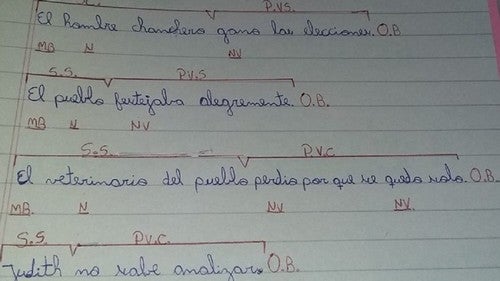 P.V.S.
El hombre chanchero gano las elecciones. O.B
MB N NV
S.S. P.V.S
El pueblo festejaba alegremente. O.B.
MB N NV
S.S. P.V.C
El veterinario del pueblo perdio por que se quedo solo. O.B.
MB. N NV NV.
S.S. P.V.C.
Judith no sabe analizar. O.B.